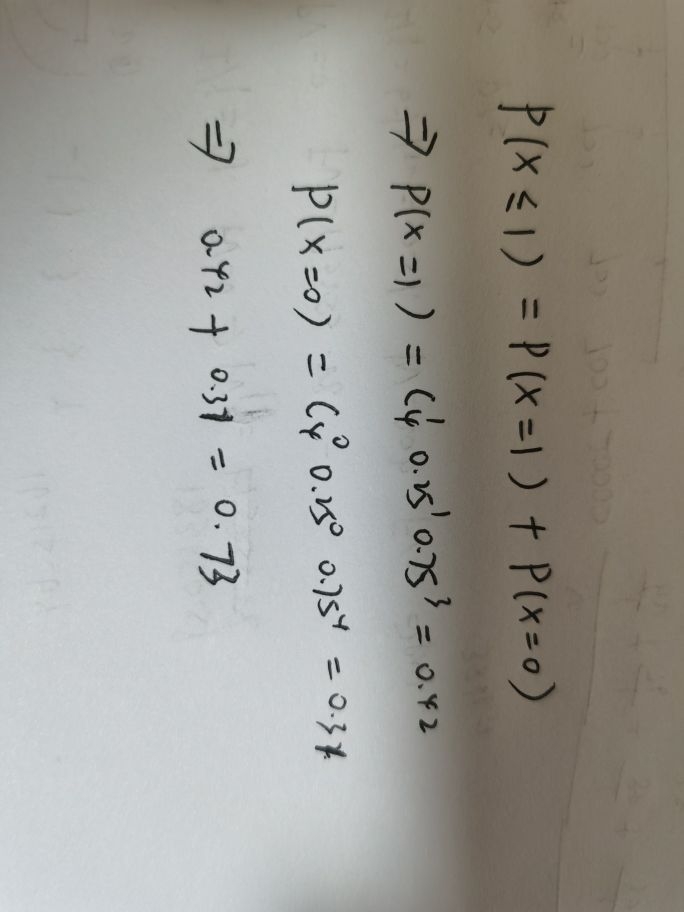 P(X ≤ 1) = P(X = 1) + P(X = 0)
⇒ P(X = 1) = C₄¹ 0.25¹ 0.75³ = 0.42
P(X = 0) = C₄⁰ 0.25⁰ 0.75⁴ = 0.31
⇒ 0.42 + 0.31 = 0.73